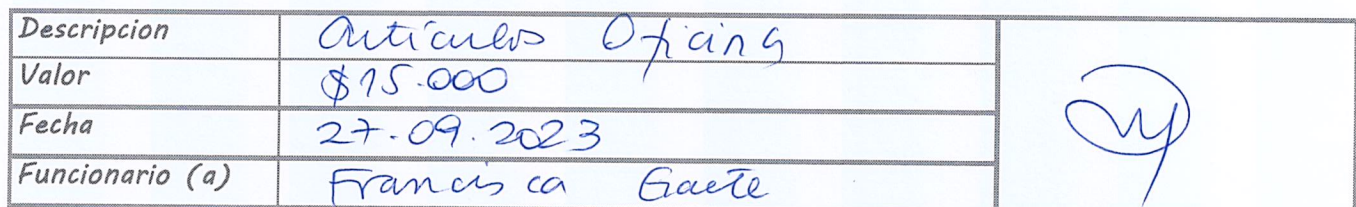 Descripcion Artículos Oficina
Valor $15.000
Fecha 27.09.2023
Funcionario (a) Francisca Gaete